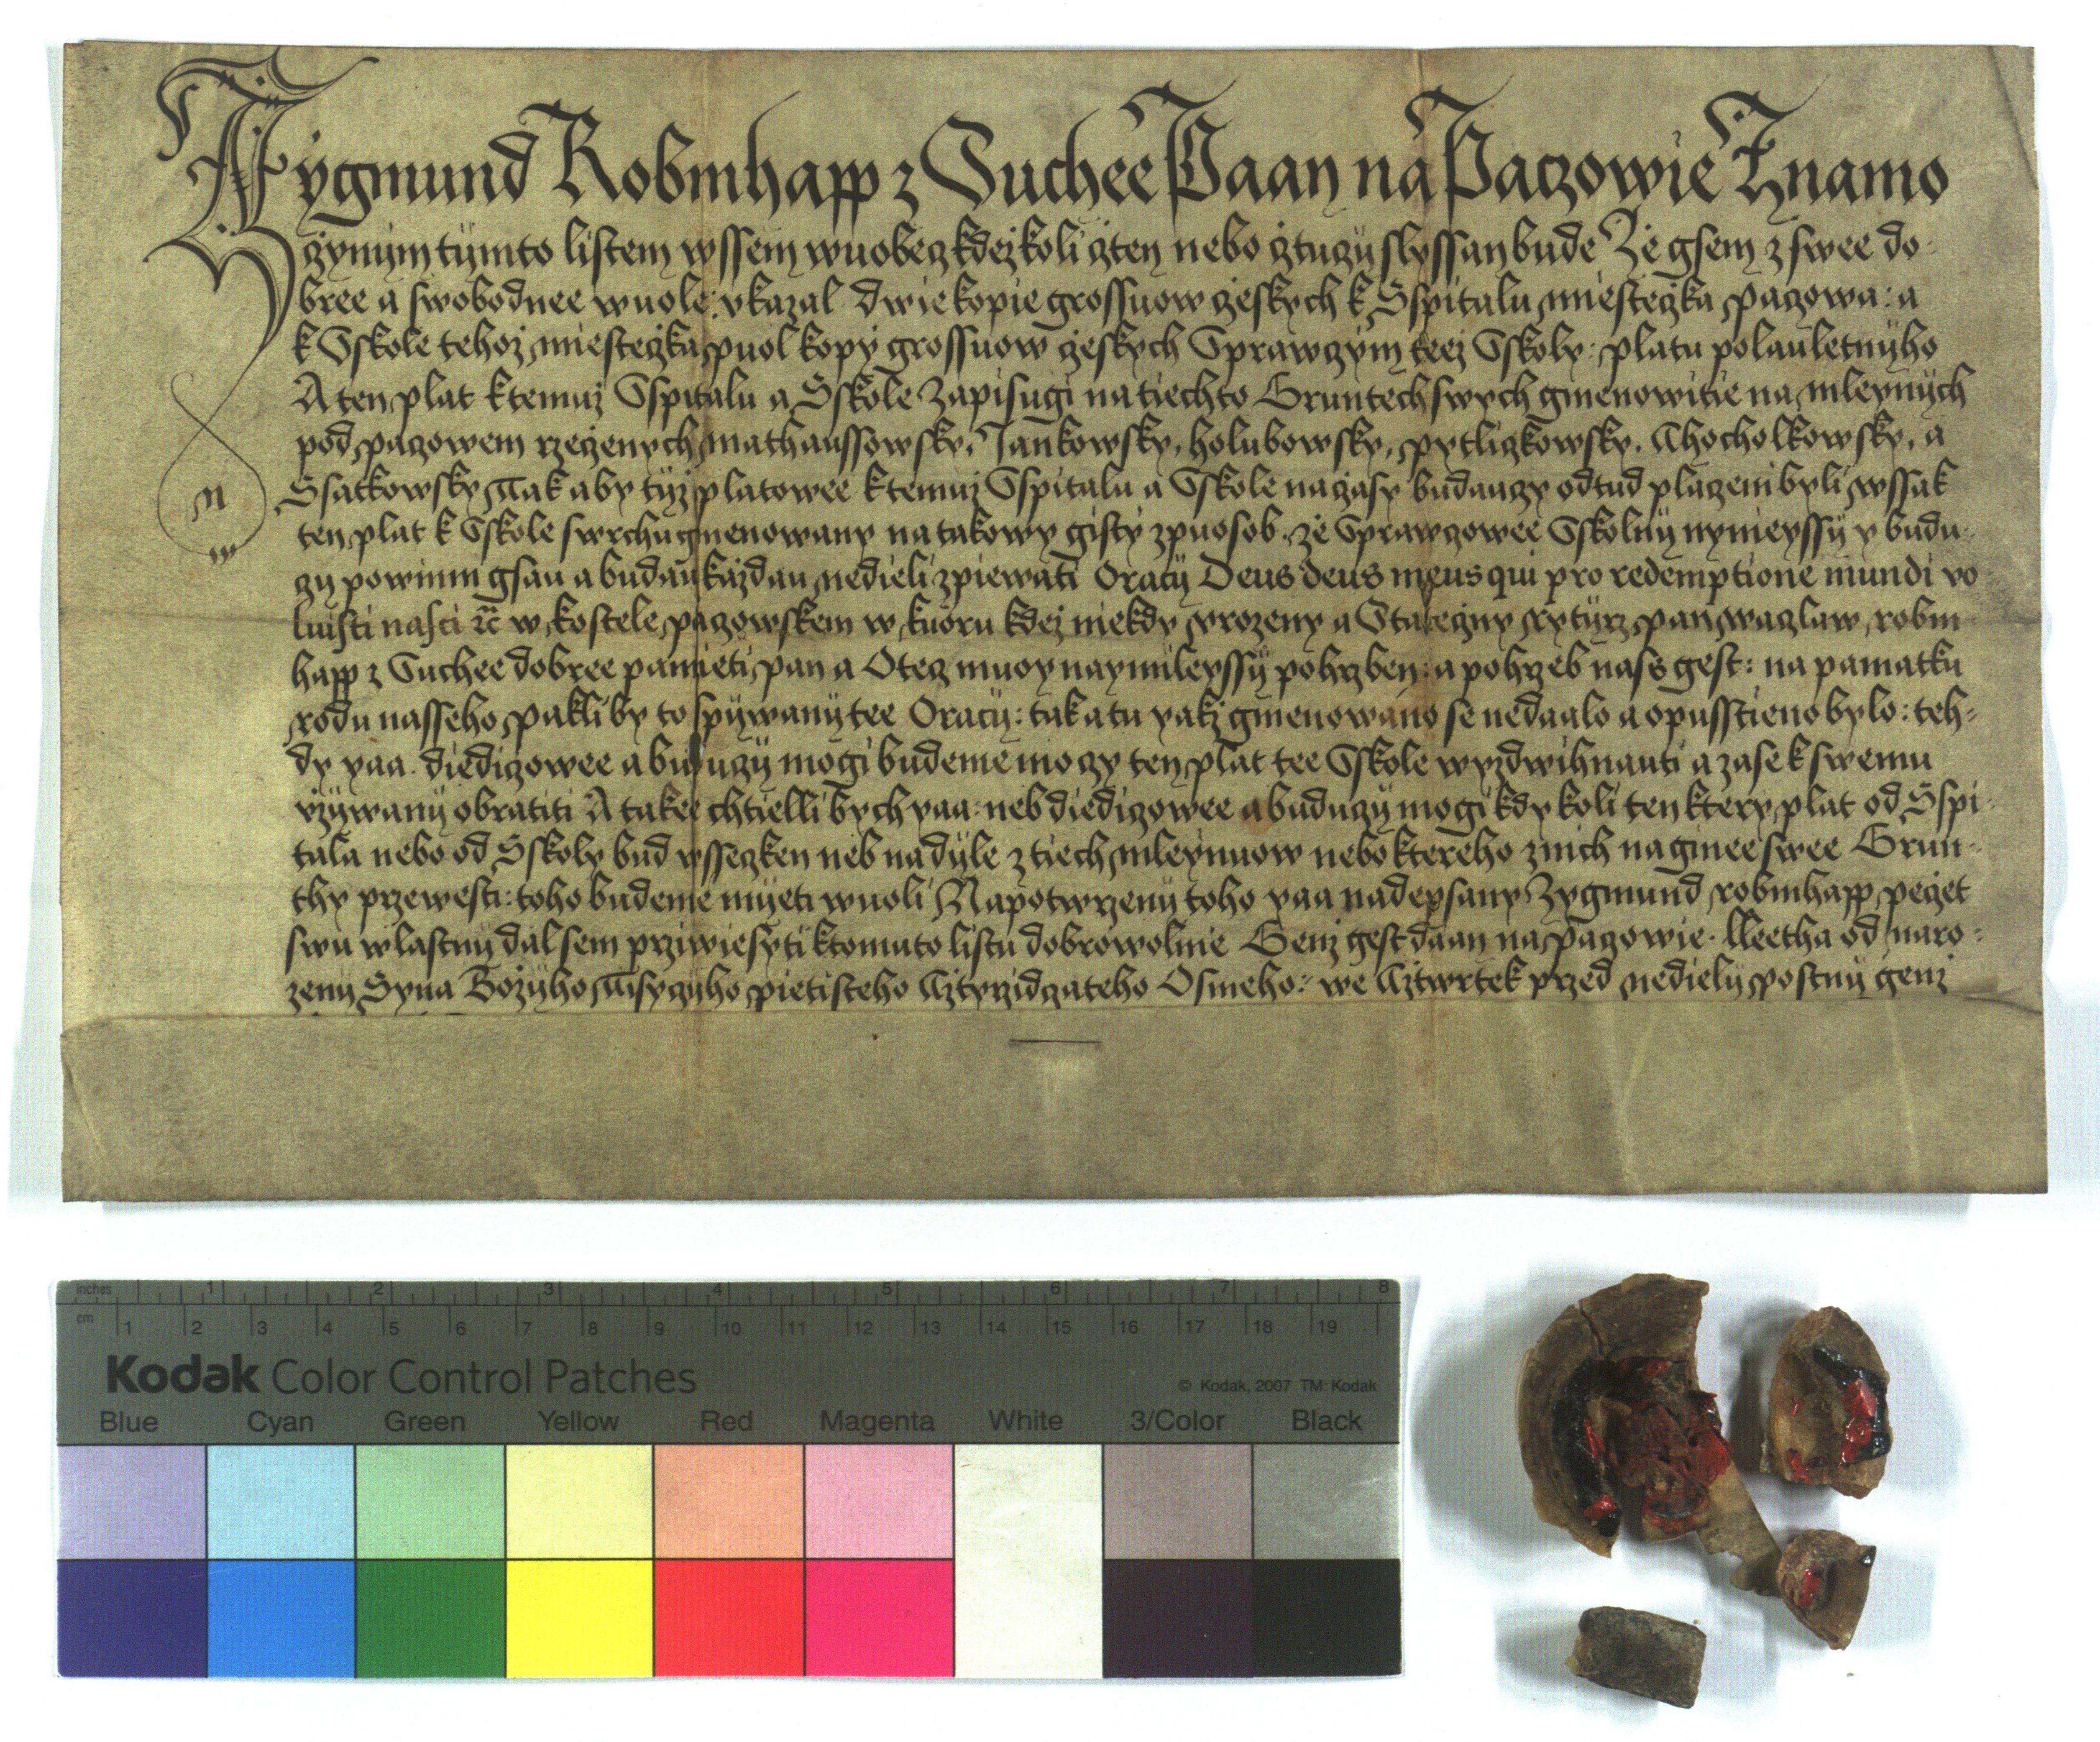 Zygmund Robmhapp z Suchee Paan na Paczowie Znamo
czynym tijmto listem wssem wuobecz kdeżkoli cżten nebo cżtuczij slyssan bude Że gsem z swee do
bree a swobodnee wuole: vkazal dwie kopie grossuow cżeskych k Sspitalu miesteczka paczowa: a
k Sskole tehoż miesteczka puol kopy grossuow cżeskych Sprawczym teeż Sskoly: platu polauletnijho
A ten plat k temuż Sspitalu a Sskole Zapisugi na tiechto Gruntech swych gmenowitie na mleynijch
pod paczowem rzecżenych mathaussowsky, Jankowsky, holubowsky, pytliczkowsky, Chocholkowsky, a
Ssatkowsky Tak aby tijż platowee k temuż Sspitalu a Sskole na cżasy budauczy odtud placzeni byli wssak
ten plat k Sskole swrchu gmenowany na takowy gisty zpuosob, że Sprawczowee Sskolnij nynieyssij y budu
czy powinni gsau a budau każdau nedieli zpiewati Oracij Deus deus meus qui pro redemptione mundi vo
luisti nasci ꝛc̃ w kostele paczowskem w kuoru kdeż niekdy vrozeny a Statecżny rytijrz pan waczlaw robm
happ z Suchee dobree pamieti pan a Otecz muoy naymileyssij pohrzben: a pohrzeb nass gest: na pamatku
rodu nasseho pakli by to spijwanij tee Oracij: tak a tu yakż gmenowano se nedaalo a opusstieno bylo: teh=
dy yaa diediczowee a buduczij mogi budeme moczy ten plat tee Sskole wyzdwihnauti a zase k swemu
vżijwanij obratiti A takee chtielli bych yaa: neb diediczowee a buduczij mogi kdykoli ten ktery plat od Sspi
tala nebo od Sskoly bud wssecżken neb na dijle z tiech mleynuow nebo ktereho z nich na ginee swee Grun=
thy przewesti: toho budeme mijeti wuoli Na potwrzenij toho yaa nadepsany Zygmund robmhapp pecżet
swu wlastnij dal sem prziwiesyti k tomuto listu dobrowolnie Genż gest daan na paczowie. Leetha od naro=
zenij Syna Bożijho Tisyczijho pietisteho Cżtyrzidczateho Osmeho: we Cżtwrtek przed nedielij postnij genż
inches 1 2 3 4 5 6 7 8
cm 1 2 3 4 5 6 7 8 9 10 11 12 13 14 15 16 17 18 19
Kodak Color Control Patches
© Kodak, 2007 TM: Kodak
Blue Cyan Green Yellow Red Magenta White 3/Color Black